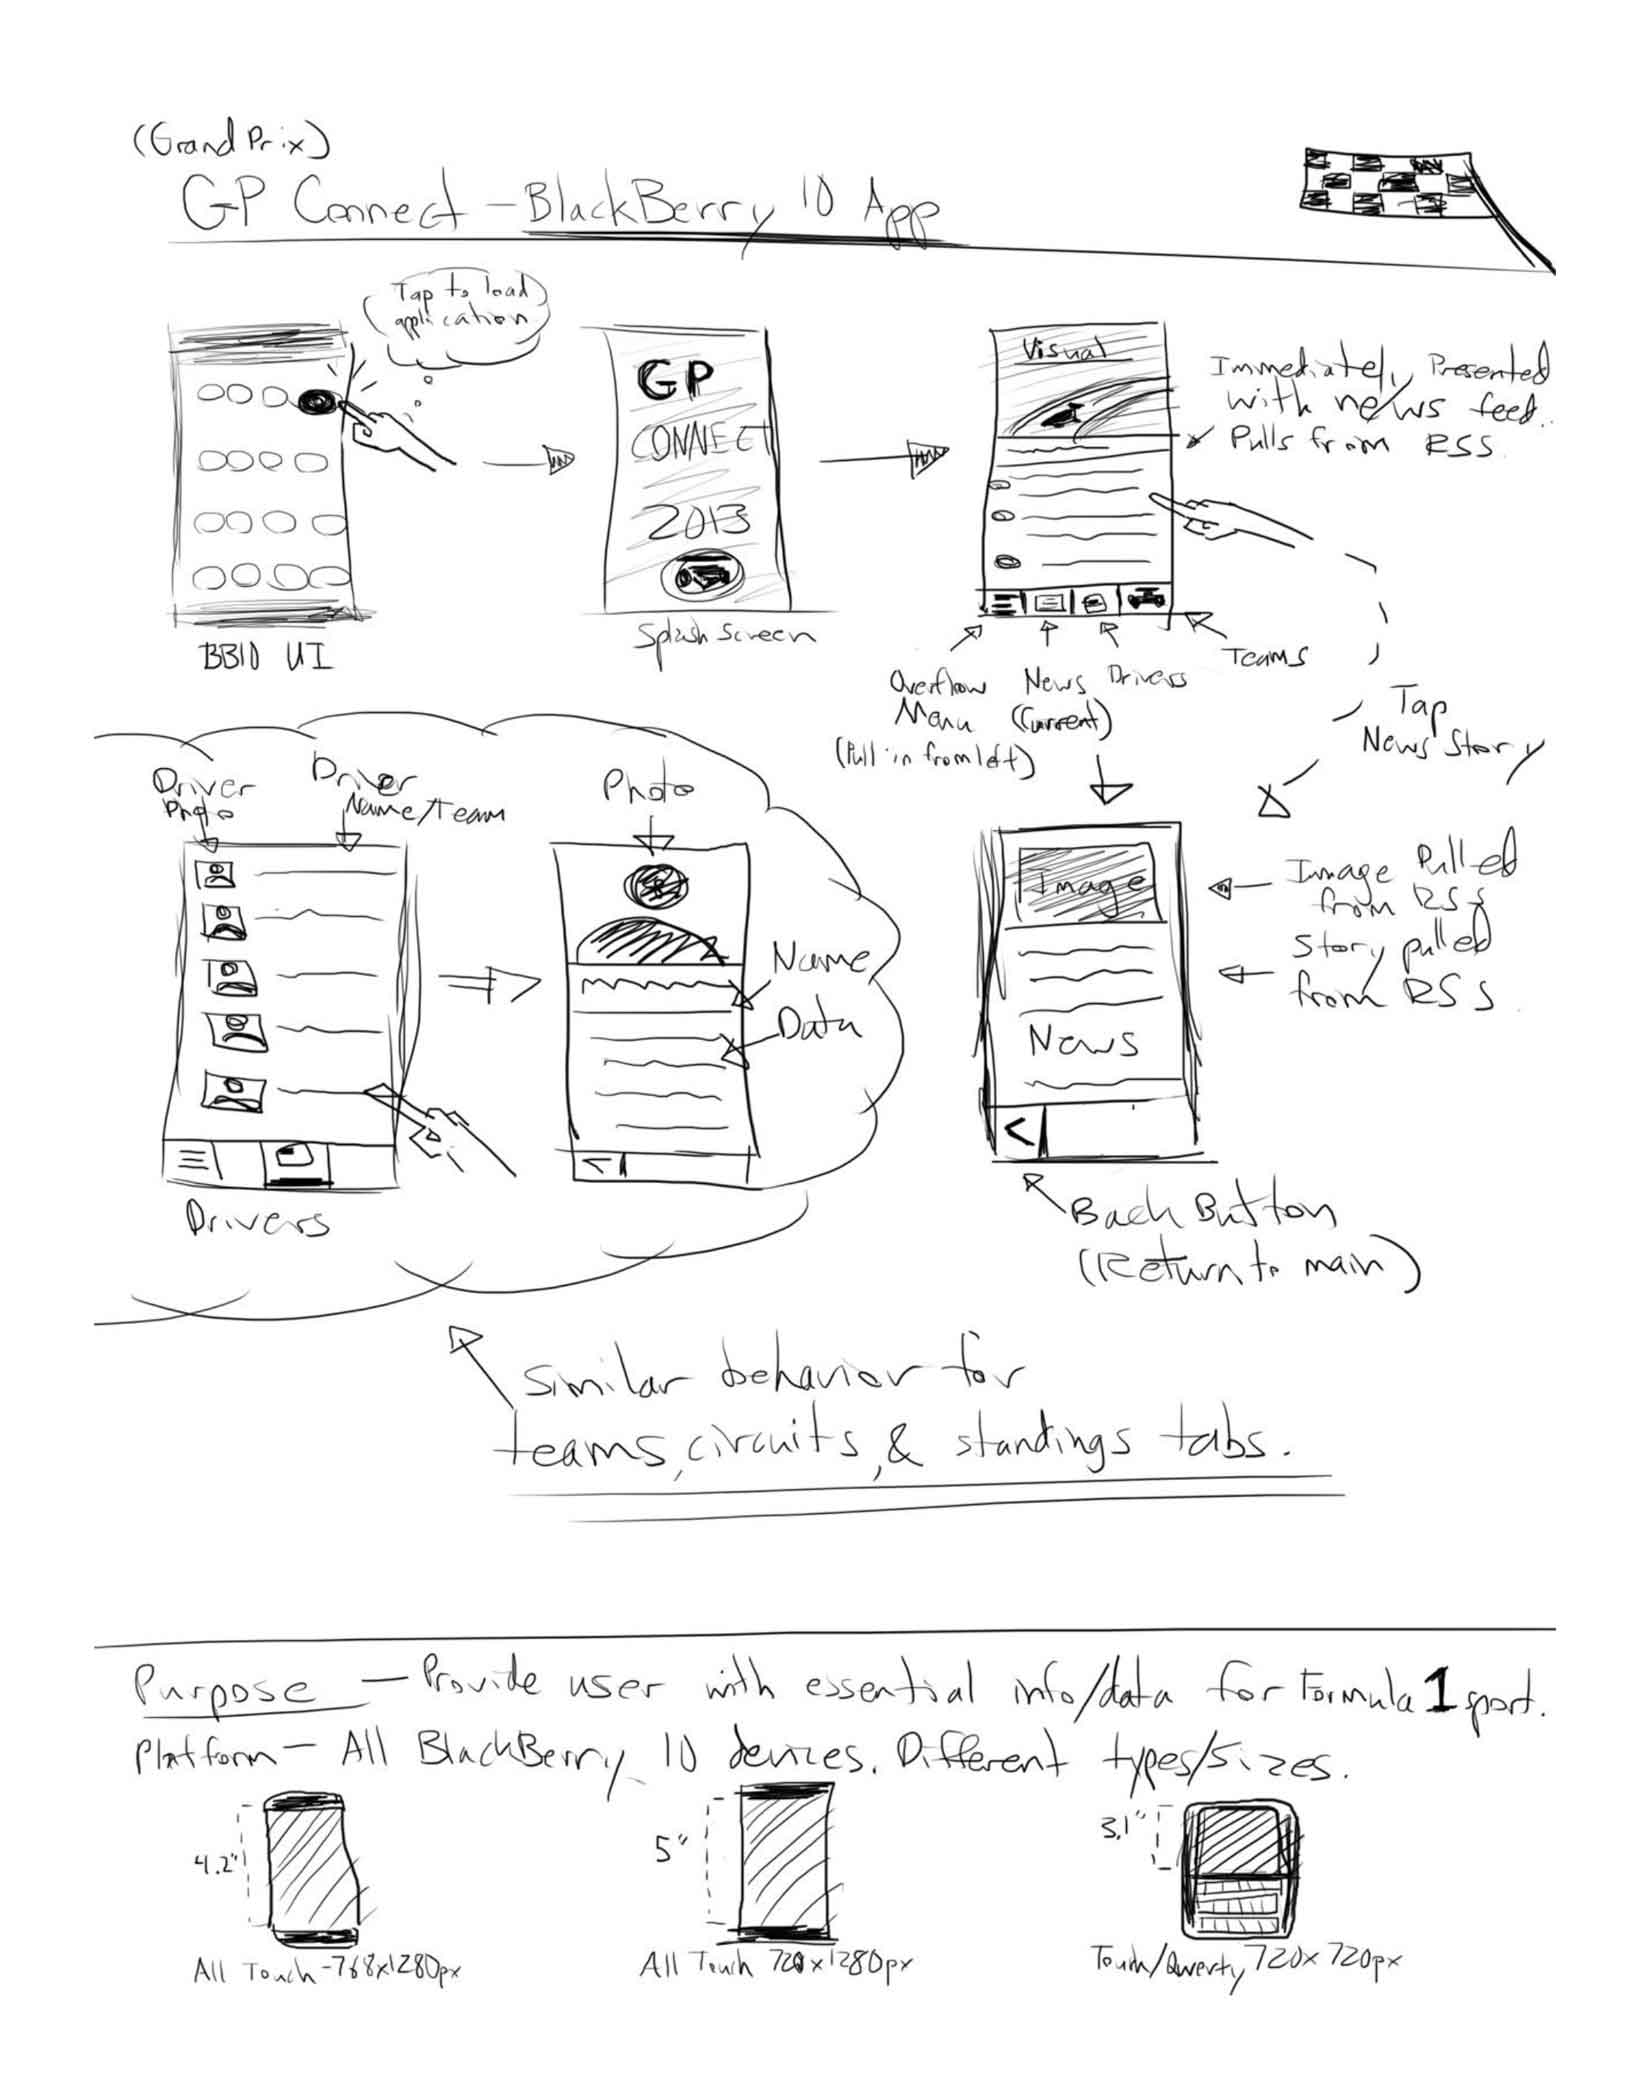 (Grand Prix)
GP Connect - BlackBerry 10 App
Tap to load
application
BB10 UI
GP
CONNECT
2013
Splash Screen
Visual
Immediately Presented
with news feed.
Pulls from RSS.
Overflow
Menu
(Pull in from left)
News
(Current)
Drivers
Teams
Tap
News Story
Driver
Photo
Driver
Name/Team
Drivers
Photo
Name
Data
Image
News
Image Pulled
from RSS
Story pulled
from RSS.
Back Button
(Return to main)
Similar behavior for
teams, circuits, & standings tabs.
Purpose - Provide user with essential info/data for Formula 1 sport.
Platform - All BlackBerry 10 devices. Different types/sizes.
4.2"
All Touch - 768x1280px
5"
All Touch 720x1280px
3.1"
Touch/Qwerty 720x720px